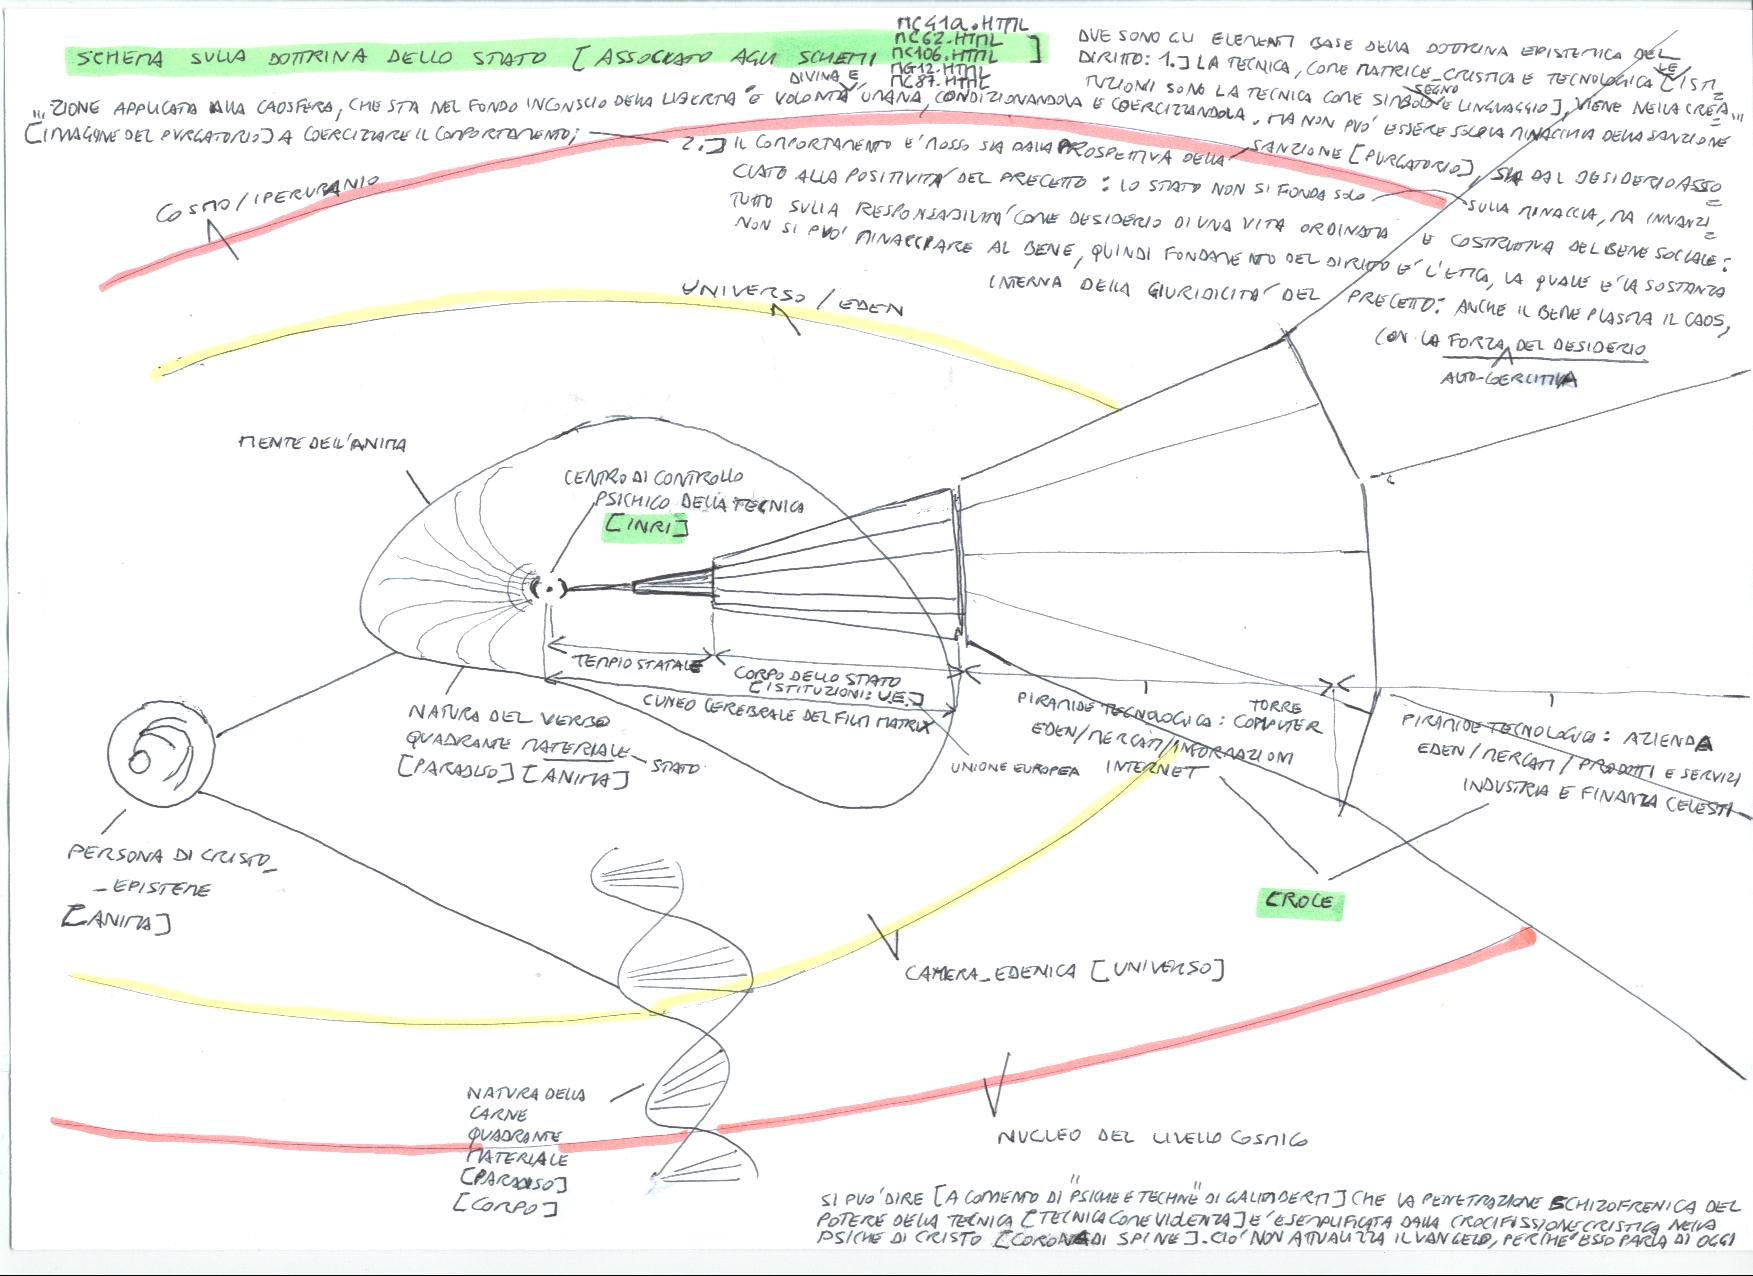 SCHEMA SULLA DOTTRINA DELLO STATO [ASSOCIATO AGLI SCHEMI
MC41a.HTML
MC62.HTML
MC106.HTML
MG12.HTML
MC87.HTML
]
DUE SONO GLI ELEMENTI BASE DELLA DOTTRINA EPISTEMICA DEL
DIRITTO: 1.] LA TECNICA, COME MATRICE_CRISTICA E TECNOLOGICA [LE ISTI=
TUZIONI SONO LA TECNICA COME SIMBOLO SEGNO E LINGUAGGIO], VIENE NELLA CREA...
...ZIONE APPLICATA ALLA CAOSFERA, CHE STA NEL FONDO INCONSCIO DELLA LIBERTA' E VOLONTA' DIVINA E UMANA, CONDIZIONANDOLA E COERCIZZANDOLA. MA NON PUO' ESSERE SOLO LA MINACCIA DELLA SANZIONE
[IMMAGINE DEL PURGATORIO] A COERCIZZARE IL COMPORTAMENTO;
2.] IL COMPORTAMENTO E' MOSSO SIA DALLA PROSPETTIVA DELLA SANZIONE [PURGATORIO], SIA DAL DESIDERIO ASSO=
CIATO ALLA POSITIVITA' DEL PRECETTO: LO STATO NON SI FONDA SOLO SULLA MINACCIA, MA INNANZI=
TUTTO SULLA RESPONSABILITA' COME DESIDERIO DI UNA VITA ORDINATA E COSTRUTTIVA DEL BENE SOCIALE:
NON SI PUO' MINACCIARE AL BENE, QUINDI FONDAMENTO DEL DIRITTO E' L'ETICA, LA QUALE E' LA SOSTANZA
INTERNA DELLA GIURIDICITA' DEL PRECETTO: ANCHE IL BENE PLASMA IL CAOS,
CON LA FORZA DEL DESIDERIO
AUTO-COERCITIVA
COSMO/IPERURANIO
UNIVERSO/EDEN
MENTE DELL'ANIMA
CENTRO DI CONTROLLO
PSICHICO DELLA TECNICA
[INRI]
TEMPIO STATALE
CORPO DELLO STATO
[ISTITUZIONI: U.E.]
CUNEO CEREBRALE DEL FILM MATRIX
UNIONE EUROPEA
NATURA DEL VERBO
QUADRANTE MATERIALE
[PARADISO] [ANIMA]
STATO
PIRAMIDE TECNOLOGICA: COMPUTER
EDEN/MERCATI/INFORMAZIONI
INTERNET
TORRE
PIRAMIDE TECNOLOGICA: AZIENDA
EDEN/MERCATI/PRODOTTI E SERVIZI
INDUSTRIA E FINANZA CELESTI
CROCE
PERSONA DI CRISTO_
_EPISTEME
[ANIMA]
CAMERA_EDENICA [UNIVERSO]
NATURA DELLA
CARNE
QUADRANTE
MATERIALE
[PARADISO]
[CORPO]
NUCLEO DEL LIVELLO COSMICO
SI PUO' DIRE [A COMMENTO DI "PSICHE E TECHNE" DI GALIMBERTI] CHE LA PENETRAZIONE SCHIZOFRENICA DEL
POTERE DELLA TECNICA [TECNICA COME VIOLENZA] E' ESEMPLIFICATA DALLA CROCIFISSIONE CRISTICA NELLA
PSICHE DI CRISTO [CORONA DI SPINE]. CIO' NON ATTUALIZZA IL VANGELO, PERCHE' ESSO PARLA DI OGGI